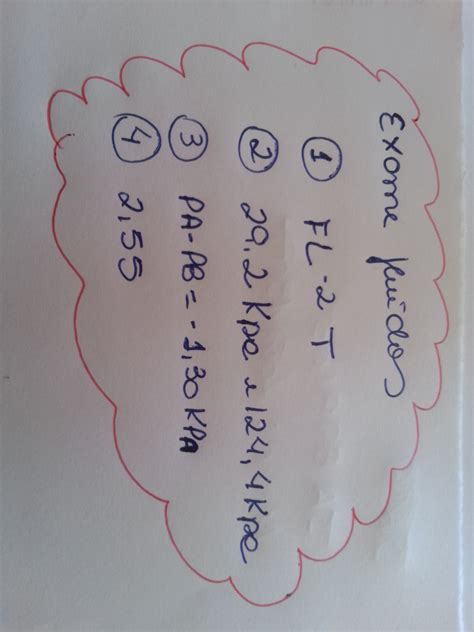 Exame fluidos
① FL⁻² T
② 29,2 Kpa e 124,4 Kpa
③ PA-PB = -1,30 KPA
④ 2,55